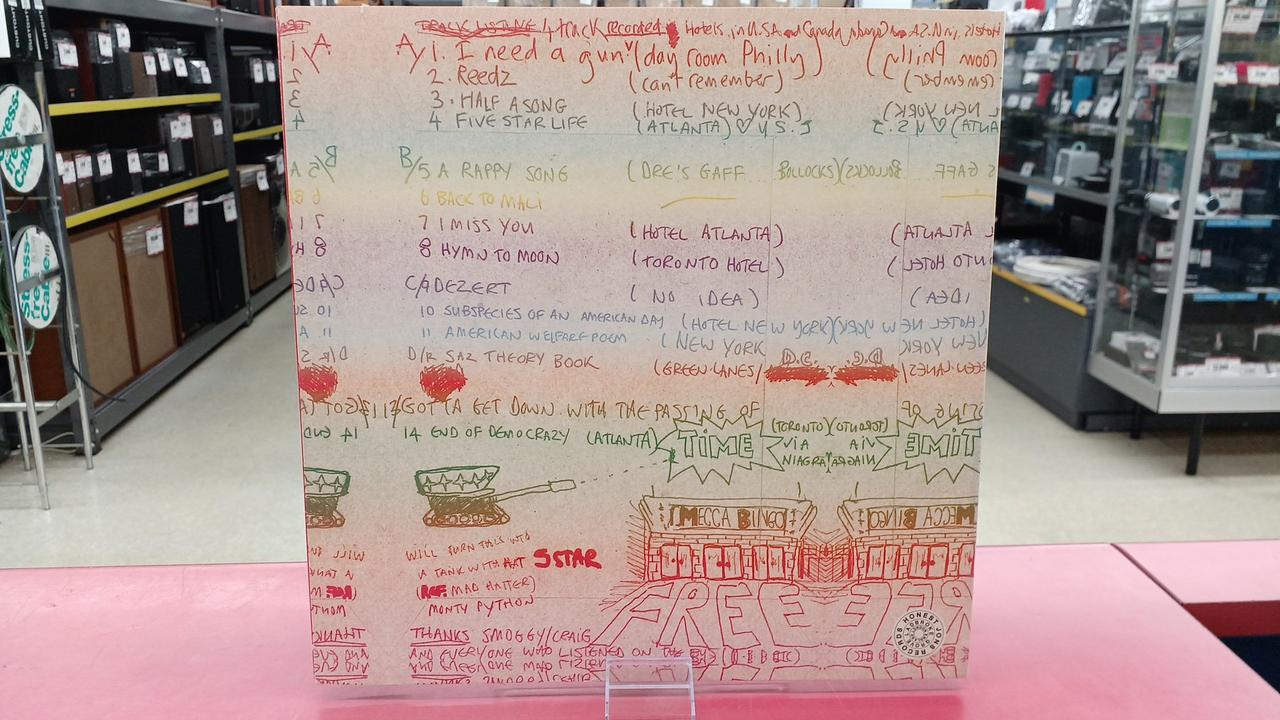 TRACK LISTING 4 track recorded Hotels in USA and Canada
A/1. I need a gun (day room Philly)
2. Reedz (can't remember)
3. HALF A SONG (HOTEL NEW YORK)
4 FIVE STAR LIFE (ATLANTA) U.S.
B/5 A RAPPY SONG (DRE'S GAFF BOLLOCKS)
6 BACK TO MALI
7 I MISS YOU (HOTEL ATLANTA)
8 HYMN TO MOON (TORONTO HOTEL)
C/9 DEZERT (NO IDEA)
10 SUBSPECIES OF AN AMERICAN DAY (HOTEL NEW YORK)
11 AMERICAN WELFARE POEM (NEW YORK
D/12 SAZ THEORY BOOK (GREEN LANES/ D.G.
GOTTA GET DOWN WITH THE PASSING OF
TIME
(TORONTO)
VIA
NIAGRA
14 END OF DEMOCRAZY (ATLANTA)
MECCA BINGO
WILL TURN THIS INTO
A TANK WITH 5 STAR
MAD HATTER)
MONTY PYTHON
FREE
THANKS SMOGGY/CRAIG
AND EVERYONE WHO LISTENED ON THE
HONEST JONS RECORDS
Stress-free